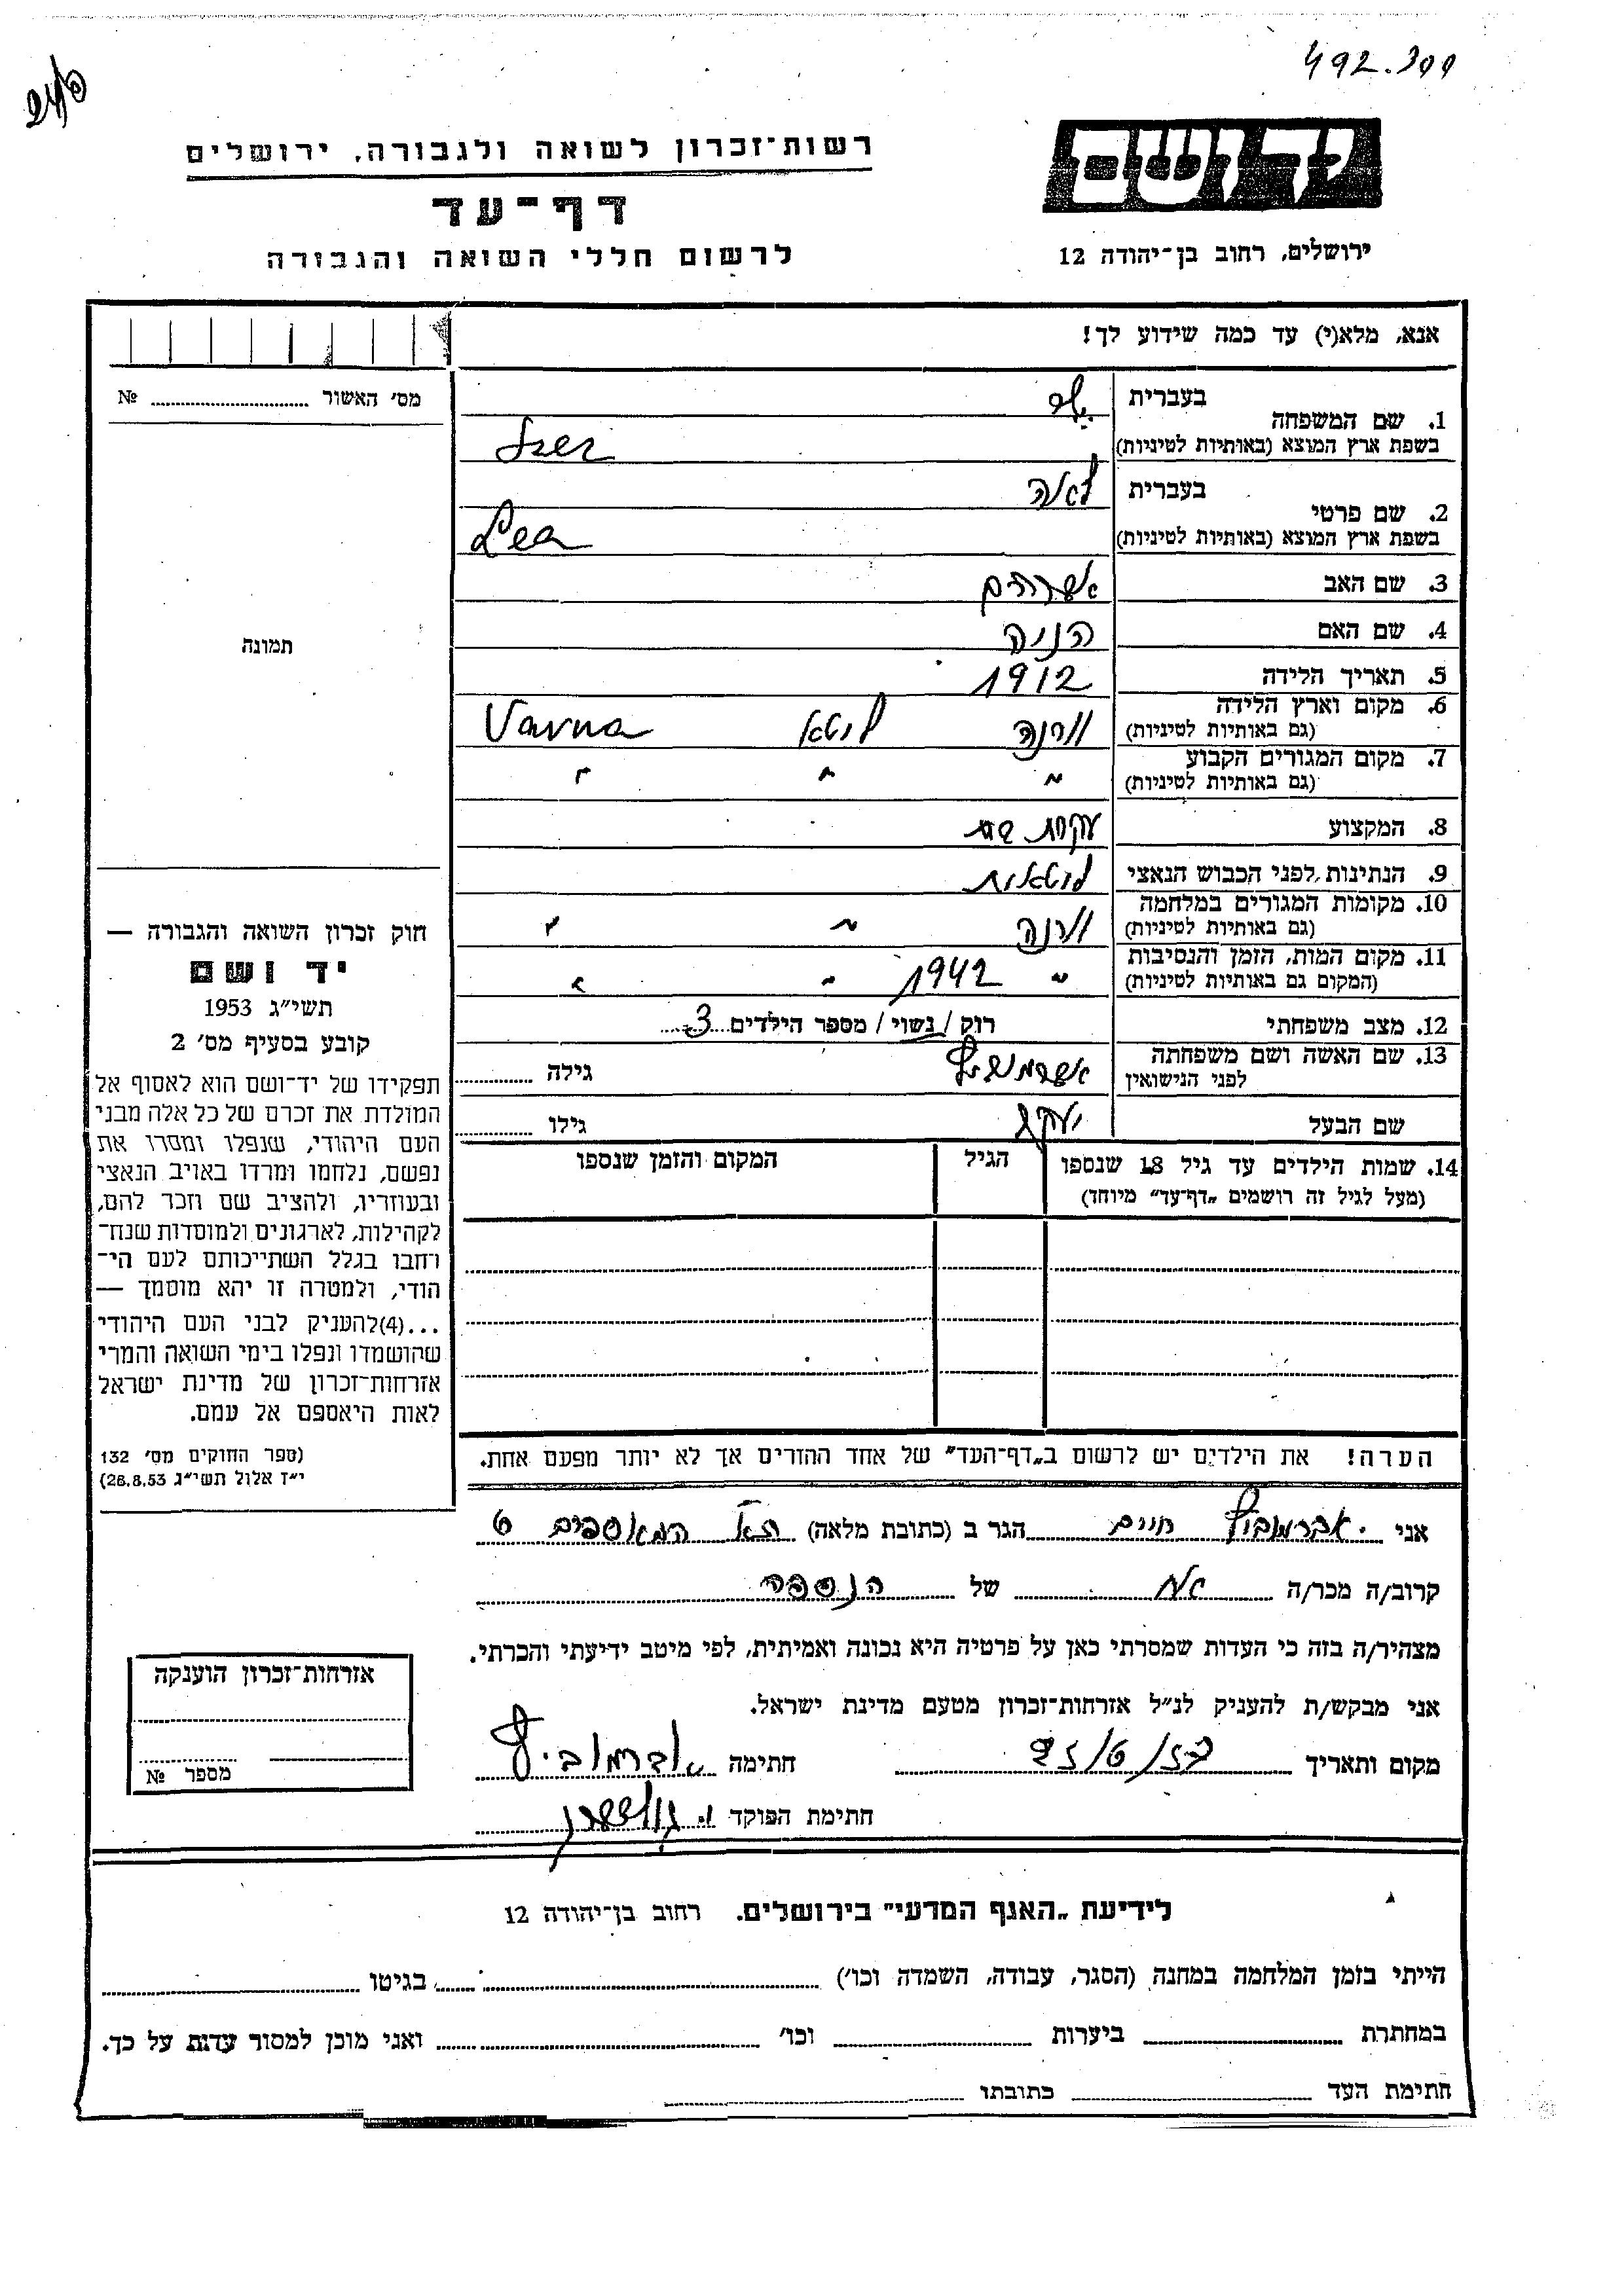 492.399
יד ושם
רשות־זכרון לשואה ולגבורה, ירושלים
דף־עד
לרשום חללי השואה והגבורה
ירושלים, רחוב בן־יהודה 12
אנא, מלא(י) עד כמה שידוע לך!
מס׳ האשור № ........
1. שם המשפחה
בעברית
בשפת ארץ המוצא (באותיות לטיניות)
2. שם פרטי
בעברית לאה
בשפת ארץ המוצא (באותיות לטיניות) Lea
3. שם האב אפרים
4. שם האם הניה
5. תאריך הלידה 1912
6. מקום וארץ הלידה ורנה לטא Varna
(גם באותיות לטיניות)
7. מקום המגורים הקבוע " " "
(גם באותיות לטיניות)
8. המקצוע עקרת בית
9. הנתינות לפני הכבוש הנאצי לטאית
10. מקומות המגורים במלחמה ורנה " "
(גם באותיות לטיניות)
11. מקום המות, הזמן והנסיבות " 1942 " "
(המקום גם באותיות לטיניות)
12. מצב משפחתי רוק / נשוי / מספר הילדים 3
13. שם האשה ושם משפחתה אברמוביץ גילה ........
לפני הנישואין
שם הבעל יעקב גילו ........
14. שמות הילדים עד גיל 18 שנספו
(מעל לגיל זה רושמים „דף־עד” מיוחד)
הגיל
המקום והזמן שנספו
הערה! את הילדים יש לרשום ב„דף־העד” של אחד ההורים אך לא יותר מפעם אחת.
תמונה
חוק זכרון השואה והגבורה —
יד ושם
תשי״ג 1953
קובע בסעיף מס׳ 2
תפקידו של יד־ושם הוא לאסוף אל
המולדת את זכרם של כל אלה מבני
העם היהודי, שנפלו ומסרו את
נפשם, נלחמו ומרדו באויב הנאצי
ובעוזריו, ולהציב שם וזכר להם,
לקהילות, לארגונים ולמוסדות שנח־
רחבו בגלל השתייכותם לעם הי־
הודי, ולמטרה זו יהא מוסמך —
...(4)להעניק לבני העם היהודי
שהושמדו ונפלו בימי השואה והמרי
אזרחות־זכרון של מדינת ישראל
לאות היאספם אל עמם.
(ספר החוקים מס׳ 132
י״ז אלול תשי״ג 28.8.53)
אני אברמוביץ חיים הגר ב (כתובת מלאה) המאספים 6
קרוב/ה מכר/ה אח של הנספה
מצהיר/ה בזה כי העדות שמסרתי כאן על פרטיה היא נכונה ואמיתית, לפי מיטב ידיעתי והכרתי.
אני מבקש/ת להעניק לנ״ל אזרחות־זכרון מטעם מדינת ישראל.
מקום ותאריך חתימה אברמוביץ
חתימת הפוקד
אזרחות־זכרון הוענקה
מספר №
לידיעת „האגף המדעי” בירושלים. רחוב בן־יהודה 12
הייתי בזמן המלחמה במחנה (הסגר, עבודה, השמדה וכו׳) ........ בגיטו ........
במחתרת ........ ביערות ........ וכו׳ ........ ואני מוכן למסור עדות על כך.
חתימת העד ........ כתובתו ........